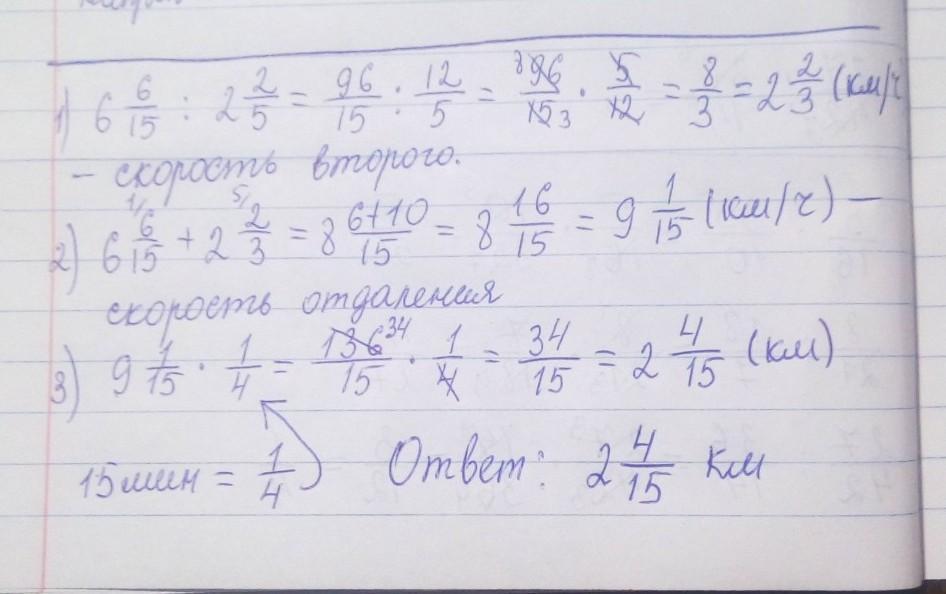 1) 6 6/15 : 2 2/5 = 96/15 : 12/5 = 96/15 · 5/12 = 8/3 = 2 2/3 (км/ч
– скорость второго.
2) 6 6/15 + 2 2/3 = 8 6+10/15 = 8 16/15 = 9 1/15 (км/ч) –
скорость отдаления
3) 9 1/15 · 1/4 = 136/15 · 1/4 = 34/15 = 2 4/15 (км)
15 мин = 1/4 Ответ: 2 4/15 км